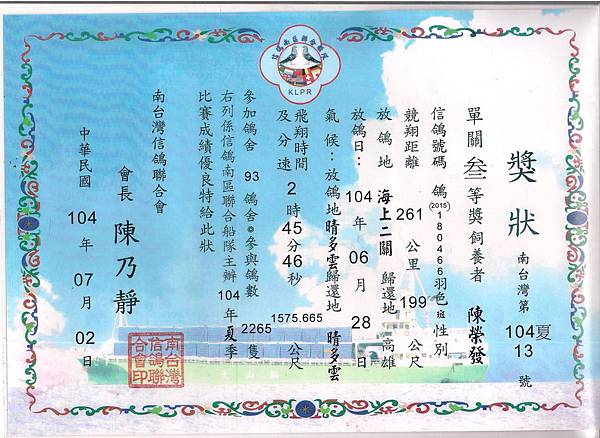 信鴿南區聯合船隊
KLPR
獎狀
南台灣第 104夏13 號
單關叁等獎飼養者 陳榮發
信鴿號碼 鴿(2015)180466羽色 斑 性別
競翔距離 261 公里 199 公尺
放鴿地 海上二關 歸還地 高雄
放鴿日: 104 年 06 月 28 日
氣候:放鴿地晴多雲歸還地 晴多雲
飛翔時間 2 時 45 分 46 秒
及分速 1575.665 公尺
參加鴿舍 93 鴿舍。參與鴿數 2265 隻
右列係信鴿南區聯合船隊主辦 104年夏季
比賽成績優良特給此狀
南台灣信鴿聯合會
會長 陳乃靜
中華民國 104 年 07 月 02 日
南台灣信鴿聯合會印